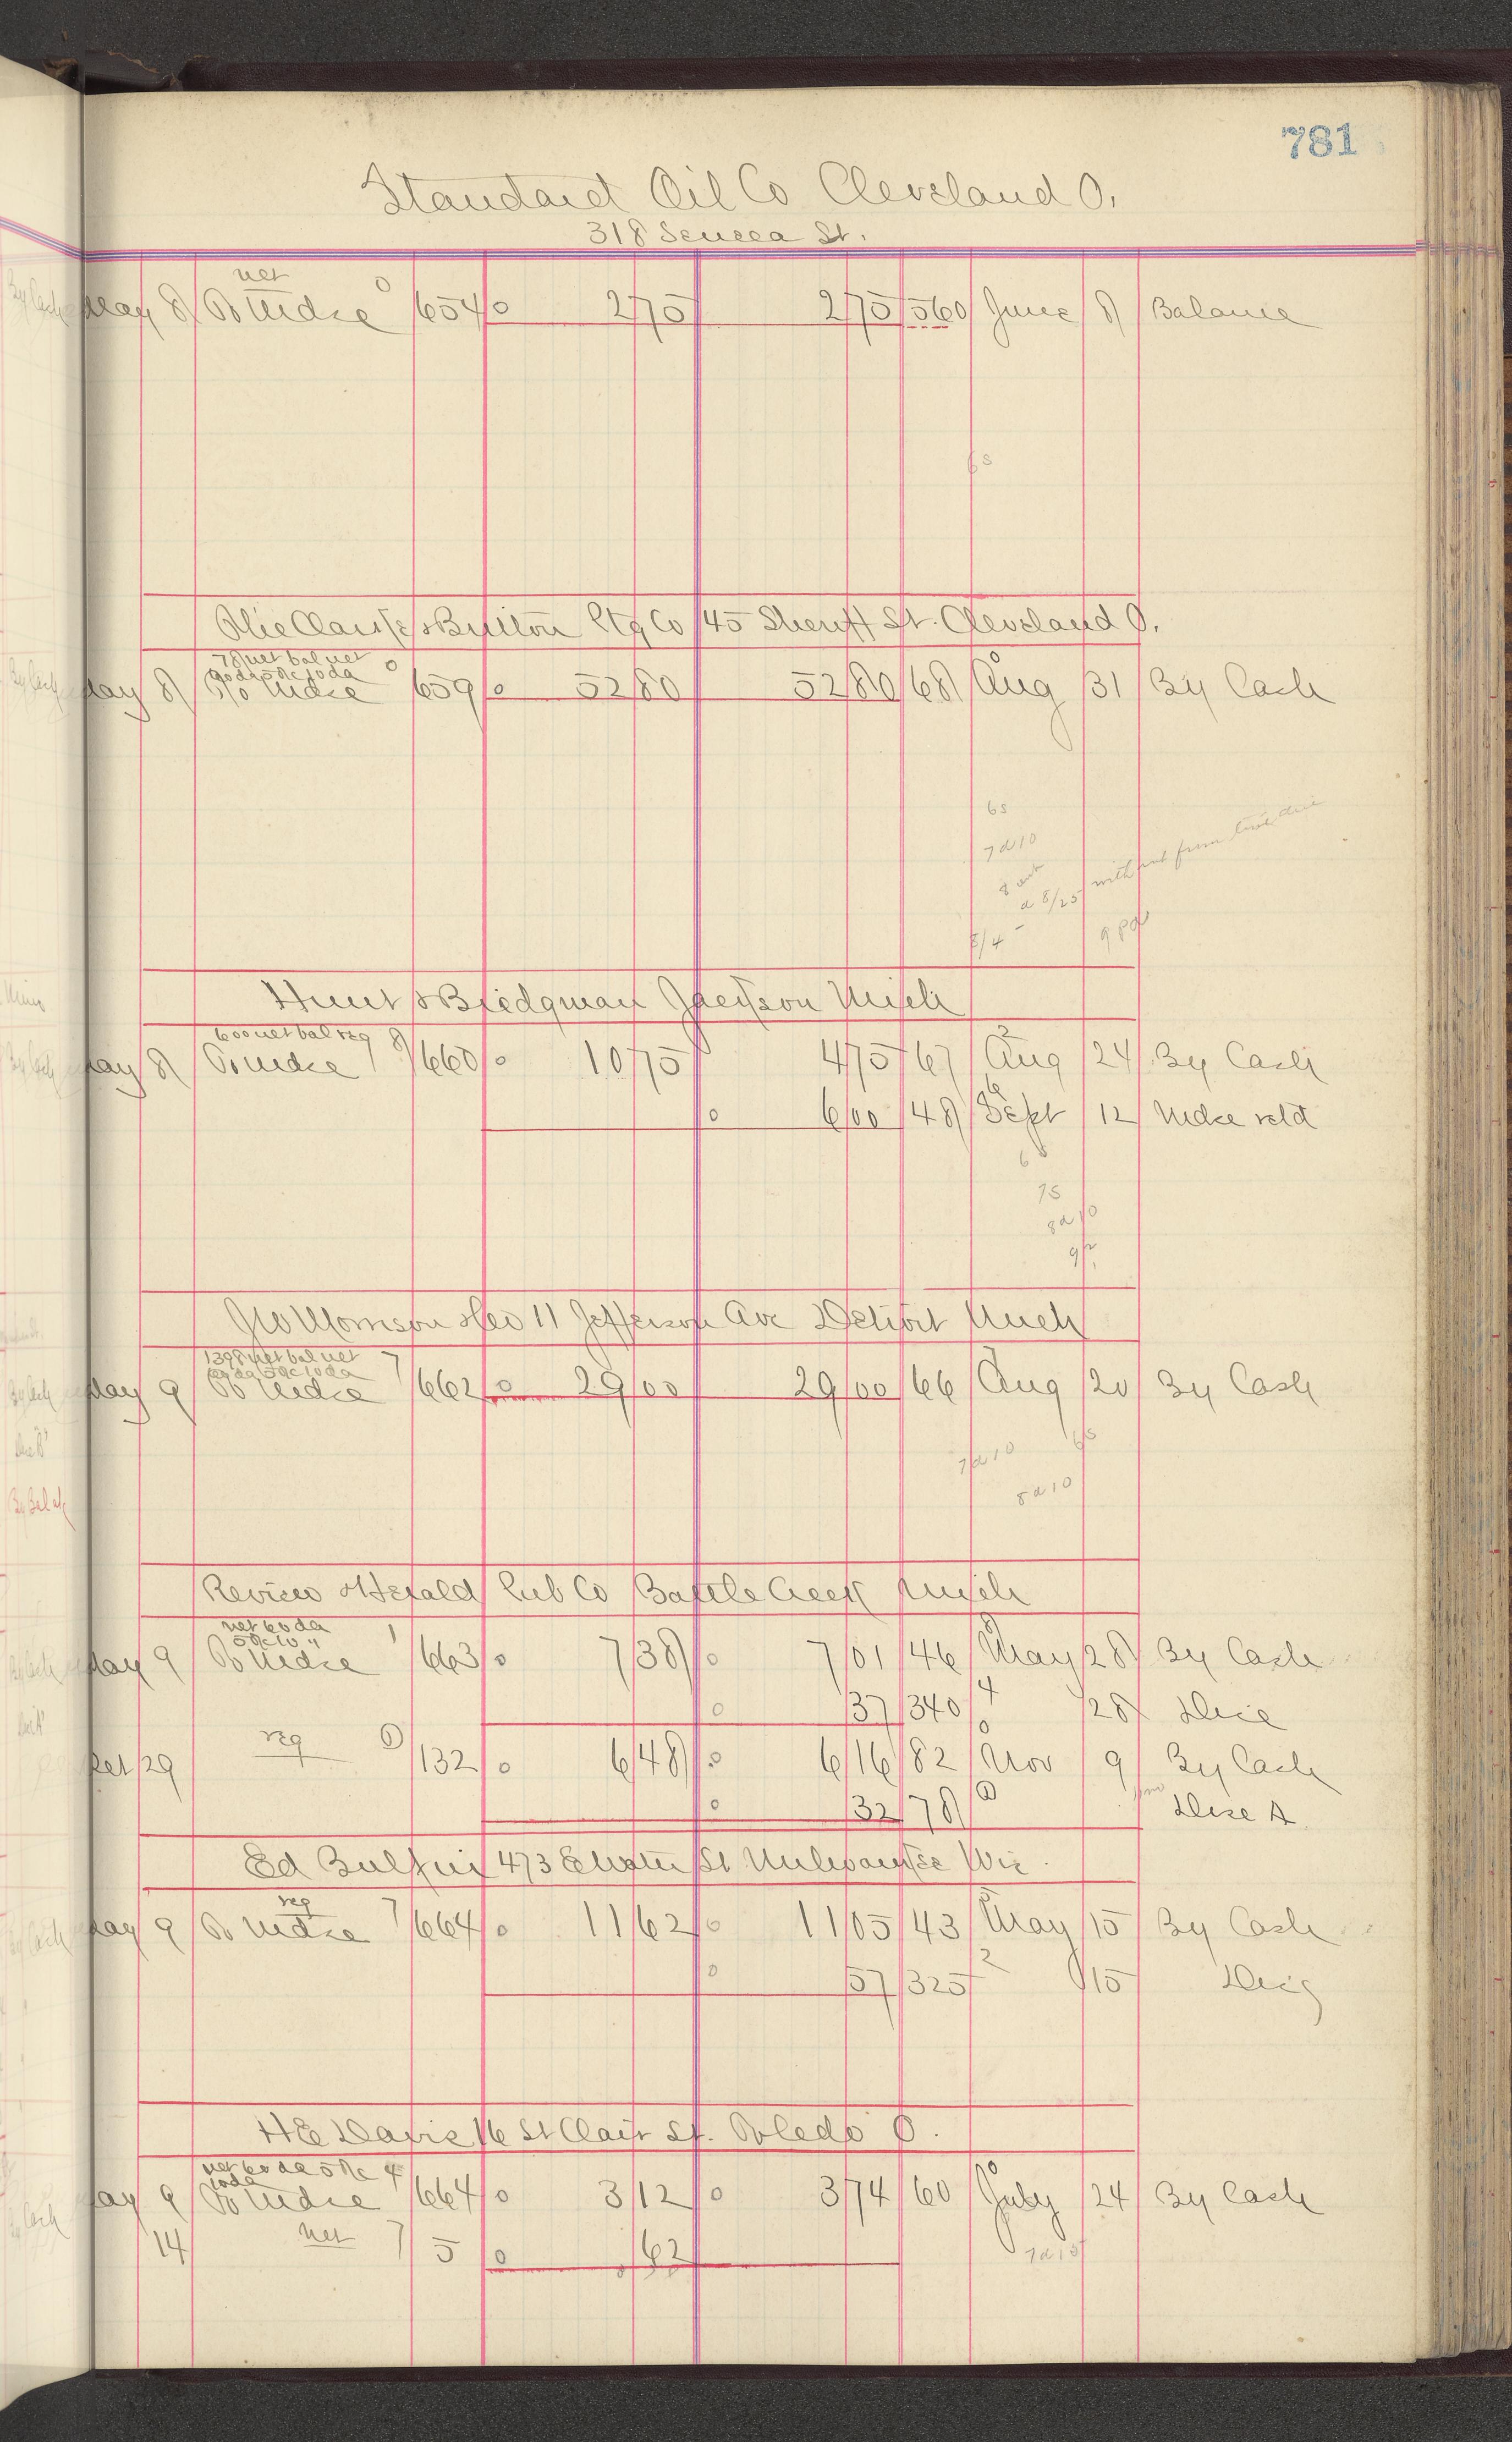 781
Standard Oil Co Cleveland O.
318 Seneca St.
net 0
May 8 To Mdse 654 0 2 75 2 75 560 June 8 Balance
6s
Britton Ptg Co 45 Sheriff St. Cleveland O.
78 net bal net 0
60 da 5% 10 da
May 8 To Mdse 659 0 52 80 52 80 68 Aug 31 By Cash
6s
7 d 10
a 8/25 without from
8/4 9 pd
Hunt & Bridgman Jackson Mich
600 net bal reg 8
May 8 To Mdse 660 0 10 75 4 75 67 Aug 24 By Cash
0 6 00 48 Sept 12 Mdse retd
6 s
7s
8 d 10
9
Morrison & Co 11 Jefferson Ave Detroit Mich
1398 net bal net 7
60 da 5% 10 da
May 9 To Mdse 662 0 29 00 29 00 66 Aug 20 By Cash
7 d 10 6s
8 d 10
Review & Herald Pub Co Battle Creek Mich
net 60 da 1
5% 10 "
May 9 To Mdse 663 0 7 38 0 7 01 46 May 28 By Cash
0 37 340 4 28 Disc
reg
Oct 29 132 0 6 48 0 6 16 82 Nov 9 By Cash
0 32 78 Disc A
Ed 473 St Milwaukee Wis
reg
May 9 To Mdse 7 664 0 11 62 0 11 05 43 May 15 By Cash
0 57 325 2 15 Disc
H E Davis 16 St Clair St. Toledo O.
net 60 da 5% 4
10 da
May 9 To Mdse 664 0 3 12 0 3 74 60 July 24 By Cash
14 net 7 5 0 62
7 d 15